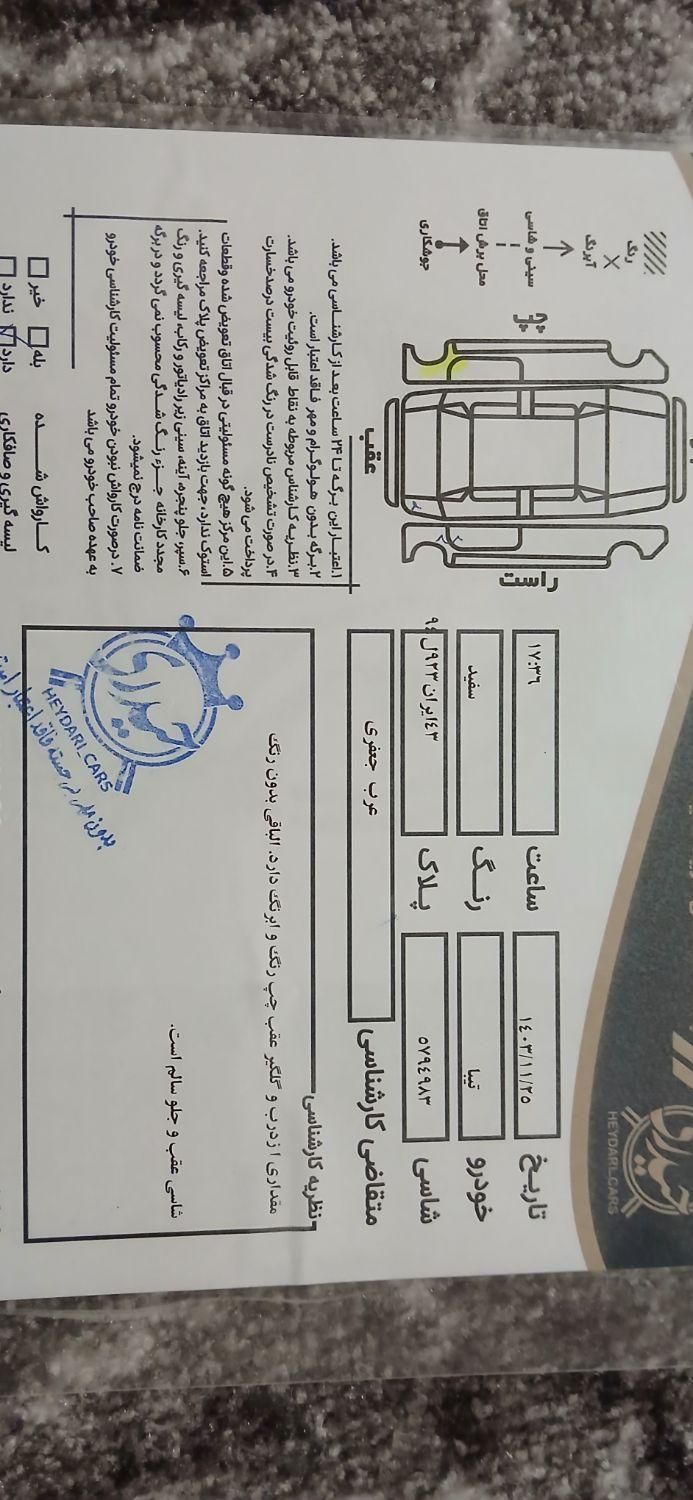 HEYDARI_CARS
تاریخ ۱۴۰۳/۱۱/۲۵ ساعت ۱۷:۳۶
خودرو تیبا رنگ سفید
شاسی ۵۷۹۴۹۸۳ پلاک
متقاضی کارشناسی عرب جعفری
نظریه کارشناسی
مقداری ازدرب و گلگیر عقب چپ رنگ و ابرنگ دارد. الباقی بدون رنگ
شاسی عقب و جلو سالم است.
HEYDARI_CARS
راست
عقب
چپ
رنگ
آبرنگ
سینی و شاسی
محل برش اتاق
جوشکاری
۱.اعتبار این برگه تا ۲۴ ساعت بعد از کارشناسی می باشد.
۲.برگه بدون هولوگرام و مهر فاقد اعتبار است.
۳.نظریه کارشناس مربوطه به نقاط قابل روئیت خودرو می باشد.
۴.در صورت تشخیص نادرست در رنگ شدگی بیست درصد خسارت
پرداخت می شود.
۵.این مرکز هیچ گونه مسئولیتی در قبال اتاق تعویض شده وقطعات
استوک ندارد، جهت بازدید اتاق به مراکز تعویض پلاک مراجعه کنید.
۶.سپر، جلو پنجره، آینه، سینی زیر رادیاتور و رکاب، لیسه گیری و رنگ
مجدد کارخانه جزء رنگ شدگی محسوب نمی گردد و در برگه
ضمانت نامه درج نمیشود.
۷. درصورت کارواش نبودن خودرو تمام مسئولیت کارشناسی خودرو
به عهده صاحب خودرو می باشد
کارواش شده بله خیر
لیسه گیری و صافکاری دارد ندارد